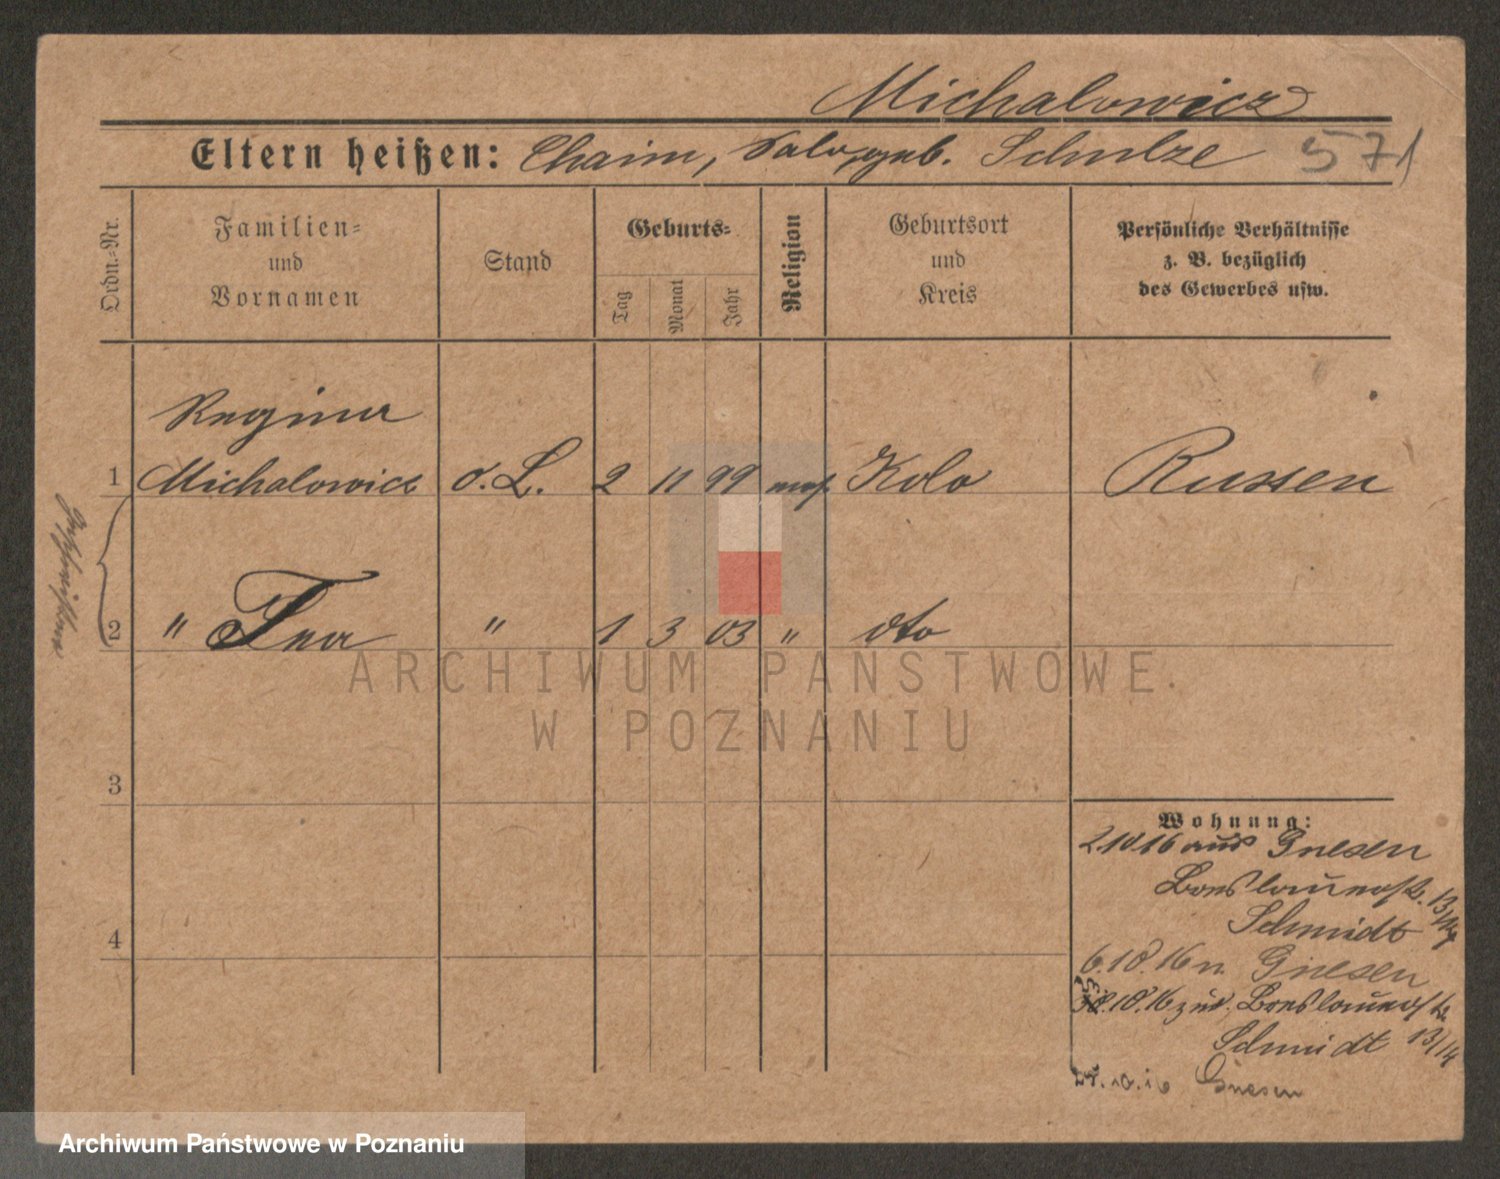 Michalowicz
Eltern heißen: Chaim, geb. Schulze 571
Ordn.-Nr.
Familien-
und
Vornamen
Stand
Geburts-
Tag
Monat
Jahr
Religion
Geburtsort
und
Kreis
Persönliche Verhältnisse
z. B. bezüglich
des Gewerbes usw.
Regina
1 Michalowicz o. L. 2 11 99 mos. Kolo Russen
Geschwistern
2 " Ina " 1 3 03 " dto
ARCHIWUM PAŃSTWOWE
W POZNANIU
3
Wohnung:
2.10.16 aus Gnesen
Breslauerstr. 13/14
Schmidt
4
6.10.16 n. Gnesen
10.16 zur. Breslauerstr.
Schmidt 13/14
10.16 Gnesen
Archiwum Państwowe w Poznaniu